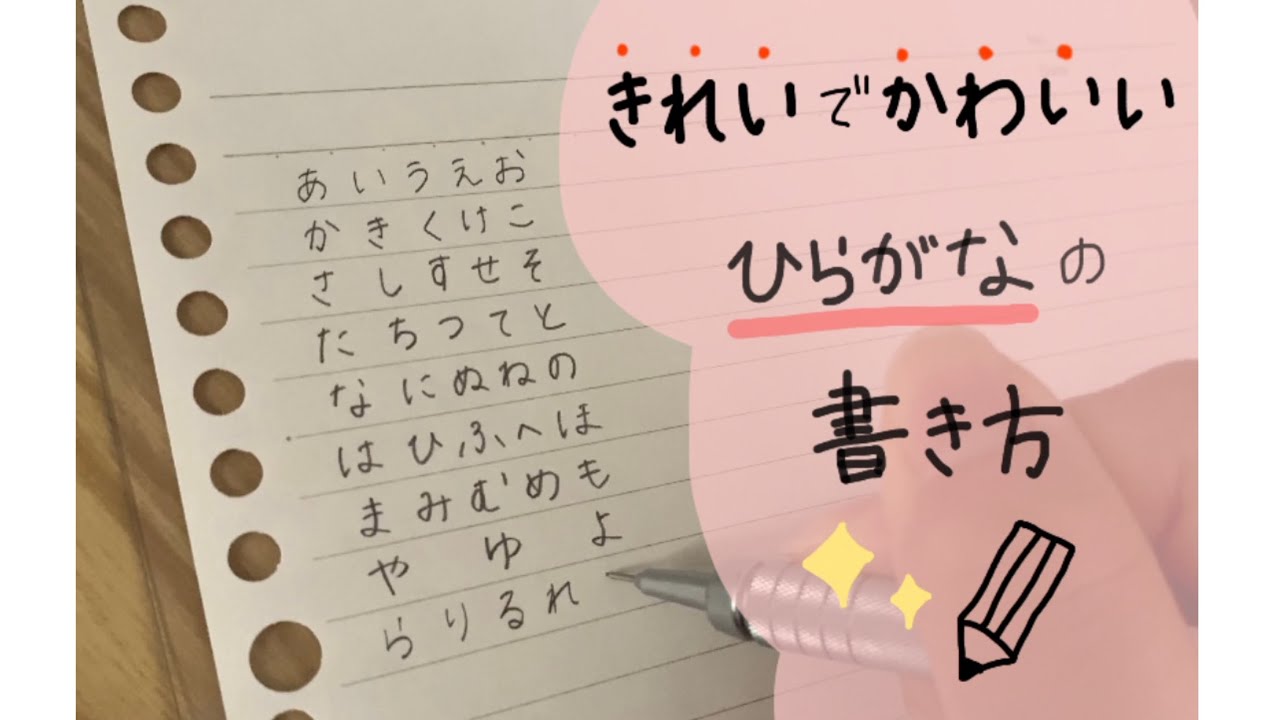 きれいでかわいい
ひらがなの
書き方
あいうえお
かきくけこ
さしすせそ
たちつてと
なにぬねの
はひふへほ
まみむめも
やゆよ
らりるれ